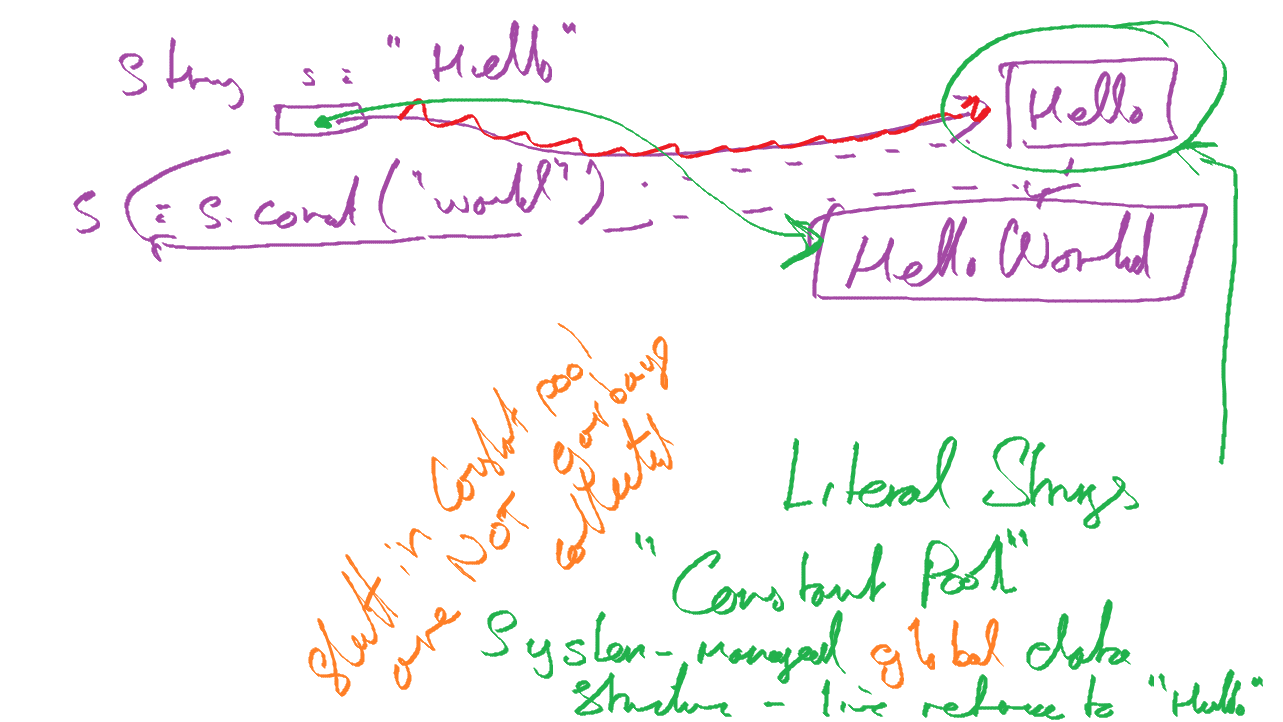 String s = "Hello"
Hello
s = s.concat("world")
Hello World
Stuff in constant pool
are NOT garbage
collected
Literal Strings
"Constant Pool"
System-managed global data
structure - live reference to "Hello"